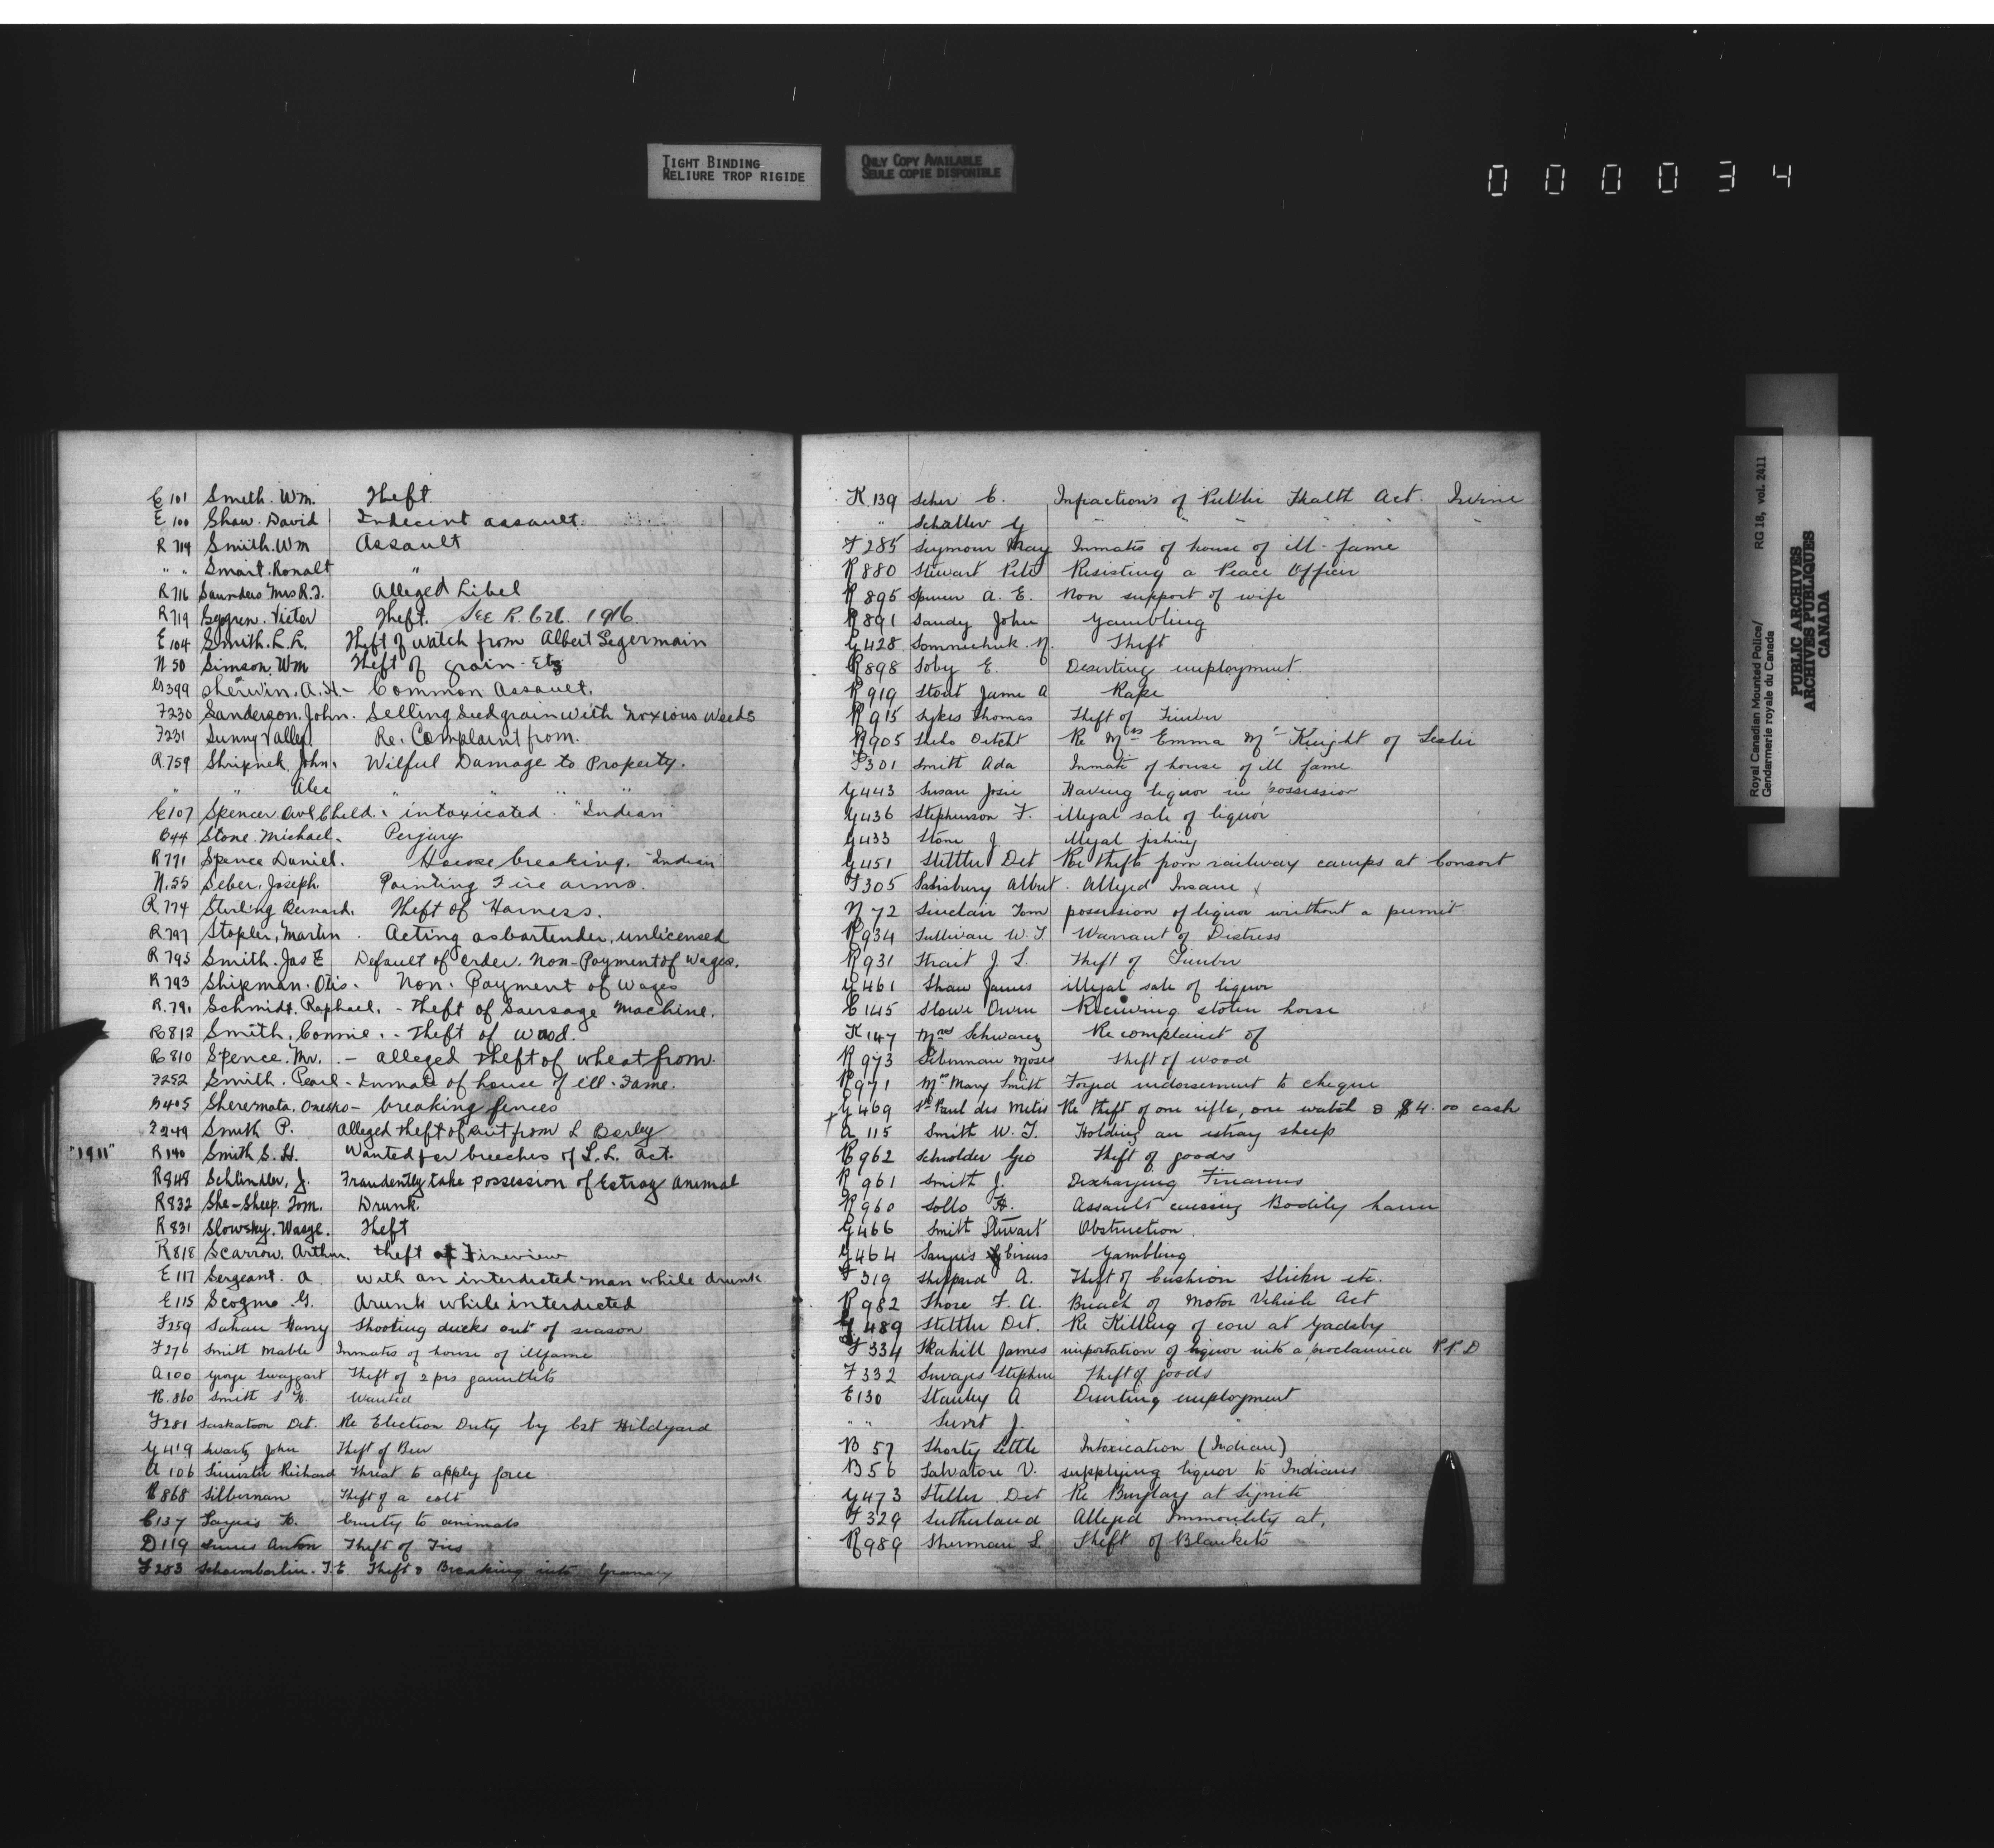 TIGHT BINDING
RELIURE TROP RIGIDE
ONLY COPY AVAILABLE
SEULE COPIE DISPONIBLE
000034
E 101 Smith. Wm. Theft
E 100 Shaw. David Indecent assault.
R 714 Smith. Wm Assault
" " Smart. Ronalt "
R 716 Saunders Mrs R.J. Alleged Libel
R 719 Victor Theft. See R. 626. 1916.
E 104 Smith. L.L. Theft of watch from Albert Segermain
N 50 Simson. Wm Theft of grain - Etc
G 399 Sherwin. A.H. - Common Assault.
F 230 Sanderson. John. Selling Seed grain with Noxious Weeds
F 231 Sunny Valley Re. Complaint from.
R. 759 Shripnek John. Wilful Damage to Property.
" Alec " " "
E 107 Spencer Owl Child. intoxicated. "Indian"
B 44 Stone. Michael. Perjury
R 771 Spence Daniel. House breaking. "Indian"
N. 55 Seber. Joseph. Pointing Fire arms.
R. 774 Sterling Bernard. Theft of Harness.
R 797 Stopler, Martin. Acting as bartender. unlicensed
R 795 Smith. Jas E Default of order. Non-Payment of Wages.
R 793 Shipman. Otis. Non. Payment of Wages
R. 791 Schmidt. Raphael. - Theft of Sausage Machine.
R 812 Smith. Connie. - Theft of Wood.
R 810 Spence. Mr. - Alleged Theft of wheat from.
F 252 Smith. Pearl - Inmate of house of ill-Fame.
B 405 Sheremata. - breaking fences
F 249 Smith P. Alleged theft of from L
"1911" R 140 Smith S. H. Wanted for breeches of L.L. Act.
R 848 Schlindler, J. Fraudently take possession of Estray animal
R 832 She-Sheep. Tom. Drunk.
R 831 Slowsky. Wasyl. Theft
R 818 Scarrow. Arthur. theft at Fineview
E 117 Sergeant. A With an interdicted man while drunk
E 115 Scogmo G. drunk while interdicted
F 259 Garry Shooting ducks out of season
F 276 Smith Mable Inmates of house of illfame
A 100 George Swaggart Theft of 2 prs gauntlets
R. 860 Smith S H. Wanted
F 281 Saskatoon Det. Re Election Duty by Cst Hildyard
G 419 Swartz John Theft of Beer
A 106 Richard Threat to apply force
R 868 Silberman Theft of a colt
C 137 Cruelty to animals
D 119 Anton Theft of Ties
F 283 Schaumberlin. J.E. Theft & Breaking into Granary
K. 139 Scher C. Infractions of Public Health Act. Irvine
" Schaller G " " " "
F 285 Seymour May Inmates of house of ill-fame
R 880 Stewart Pete Resisting a Peace Officer
R 895 Spencer A. E. Non support of wife
R 891 Sandy John Gambling
G 428 N. Theft
R 898 Soby E. Deserting employment
R 919 Stout Jame A Rape
R 915 Sykes Thomas Theft of Timber
R 905 Sheho Detcht Re Mrs Emma Mc Knight of Leslie
F 301 Smith Ada Inmate of house of ill fame
G 443 Susan Josie Having liquor in possession
G 436 Stephenson F. illegal sale of liquor
G 433 Stone J. illegal fishing
G 451 Stettler Det Re thefts from railway camps at Consort
F 305 Salisbury Albert. Alleged Insane
N 72 Sinclair Tom possession of liquor without a permit
R 934 Sullivan W. J. Warrant of Distress
R 931 Strait J. S. Theft of Timber
G 461 Shaw James illegal sale of liquor
C 145 Slowe Owen Receiving stolen horse
K 147 Mrs Schwarez Re complaint of
R 973 Siberman Moses Theft of wood
R 971 Mrs Mary Smith Forged indorsement to cheque
G 469 St Paul des Metis Re theft of one rifle, one watch & $4.00 cash
A 115 Smith W. J. Holding an estray sheep
R 962 Schrolder Geo Theft of goods
R 961 Smith J. Discharging Firearms
R 960 Sollo H. Assault causing Bodily harm
G 466 Smith Stewart Obstruction.
G 464 Gambling
F 319 Sheppard A. Theft of Cushion Slicker etc.
R 982 Shore F. A. Breach of Motor Vehicle Act
G 489 Stettler Det. Re Killing of cow at Gadsby
F 334 Skahill James importation of liquor into a proclaimed P.P.D
F 332 Stephen Theft of goods
E 130 Stanley A Deserting employment
" " J. " "
B 57 Shorty Little Intoxication (Indian)
B 56 Salvatore V. supplying liquor to Indians
G 473 Stettler Det Re Burglary at Lignite
F 329 Sutherland Alleged Immorality at,
R 989 Sherman S. Theft of Blankets
Royal Canadian Mounted Police/
Gendarmerie royale du Canada
RG 18, vol. 2411
PUBLIC ARCHIVES
ARCHIVES PUBLIQUES
CANADA